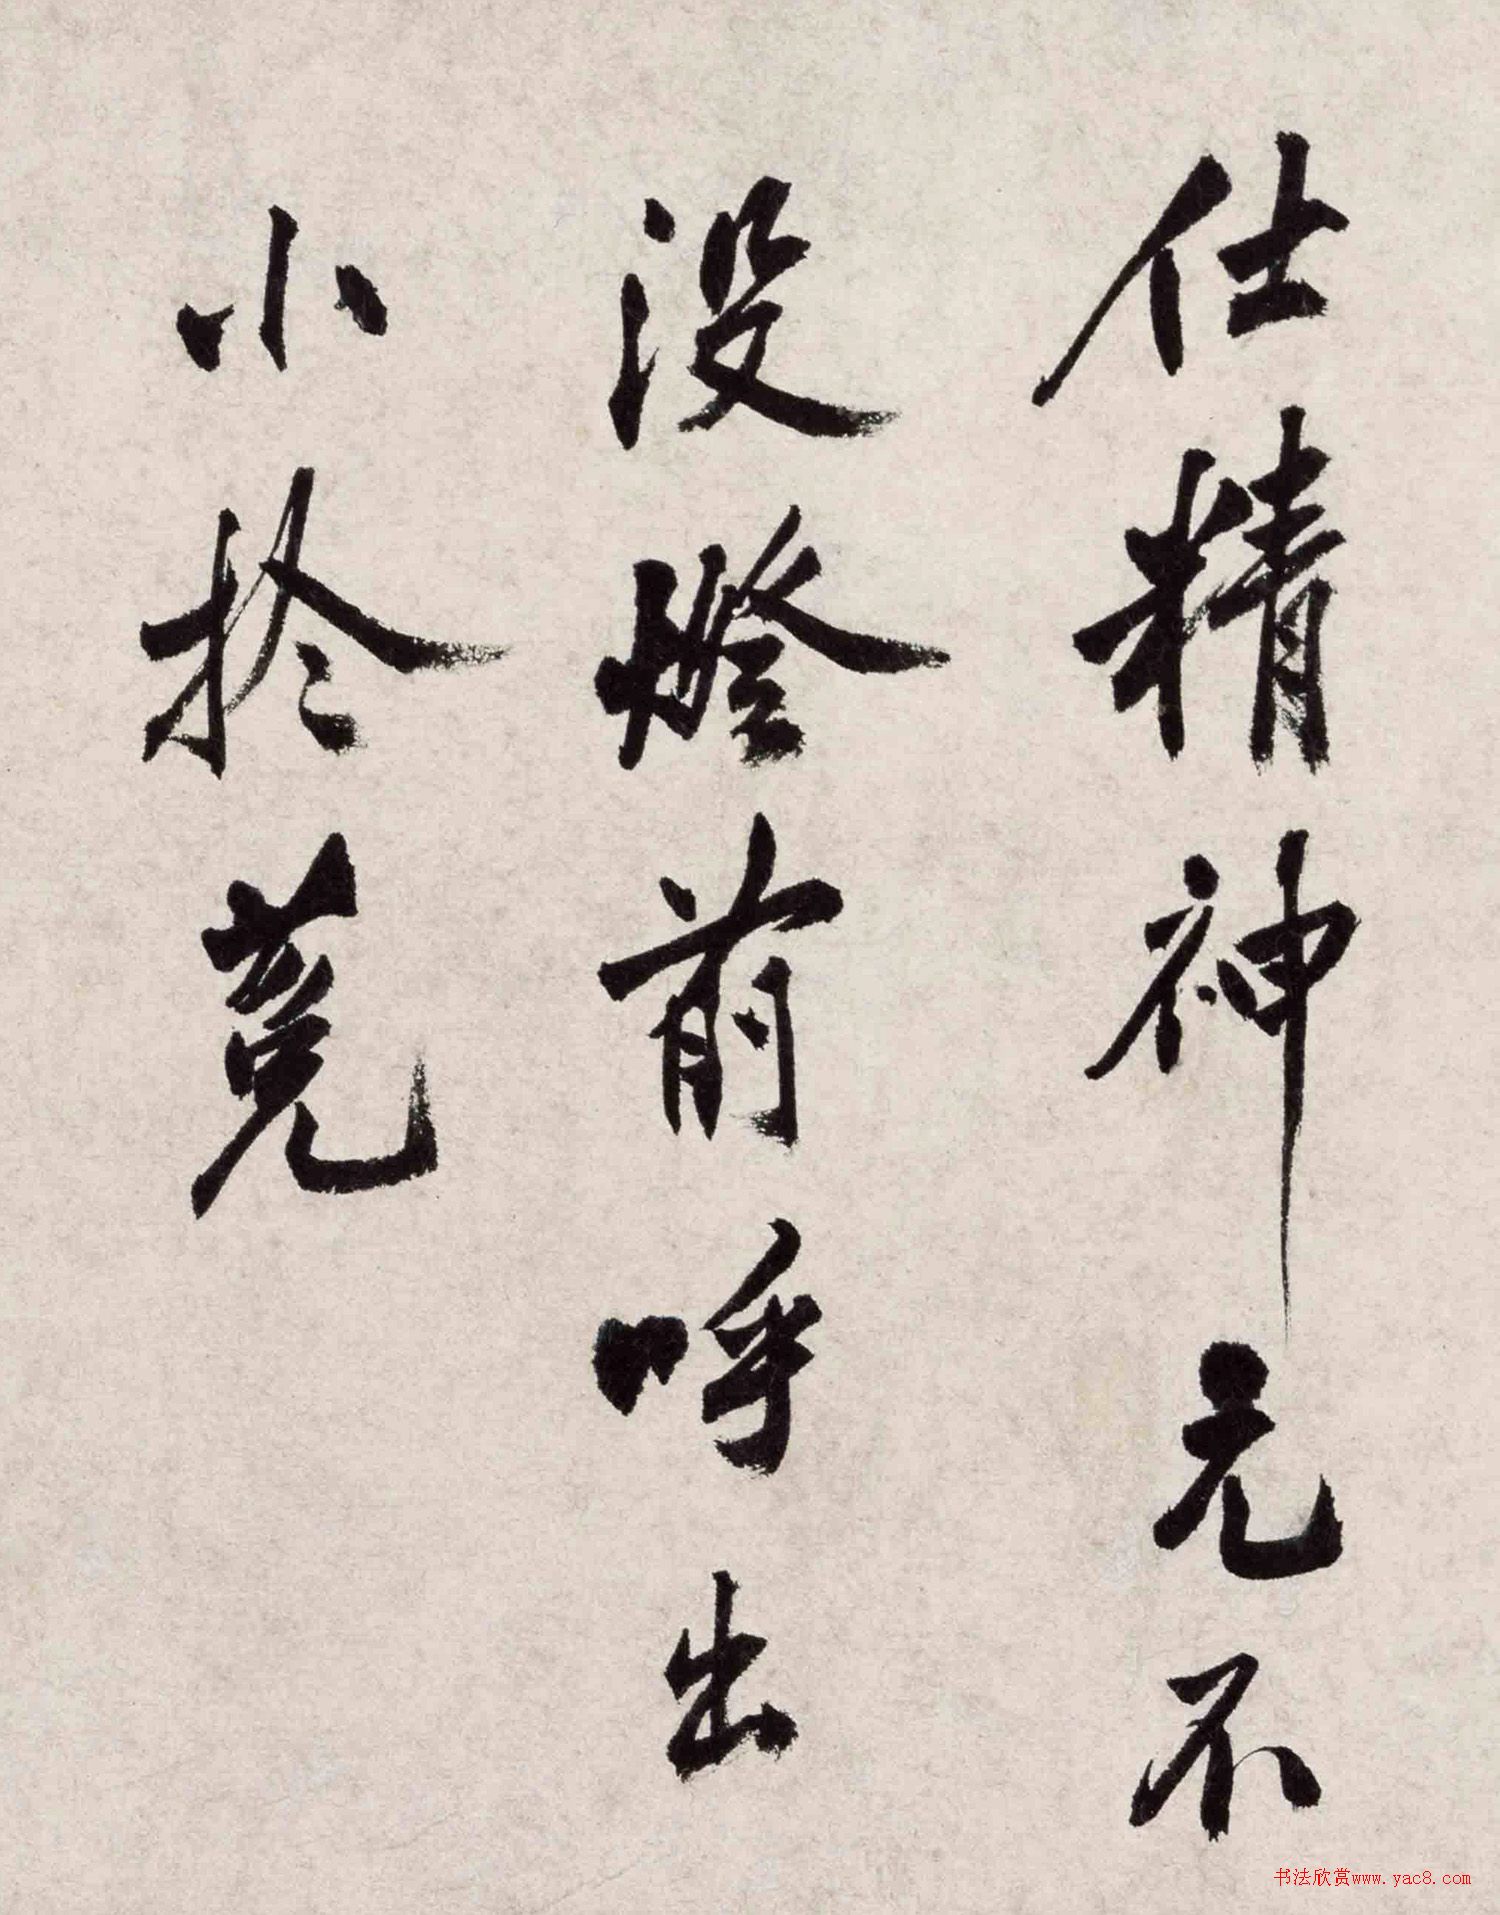 仕精神元不
没燈前呼出
小於菟
书法欣赏www.yac8.com